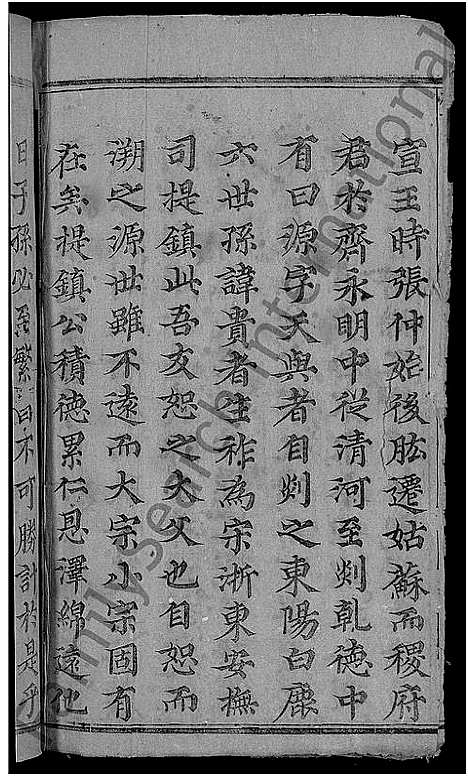 宣王時張仲始後肱遷姑蘇而稷府
君於齊永明中從清河至剡乾德中
有曰源字天與者自剡之東陽白鹿
六世孫諱貴者生祚為宋浙東安撫
司提鎮此吾友恕之大父也自恕而
溯之源世雖不遠而大宗小宗固有
在矣提鎮公積德累仁恩澤綿遠他
日子孫必繁不可勝計於是乎
FamilySearch International